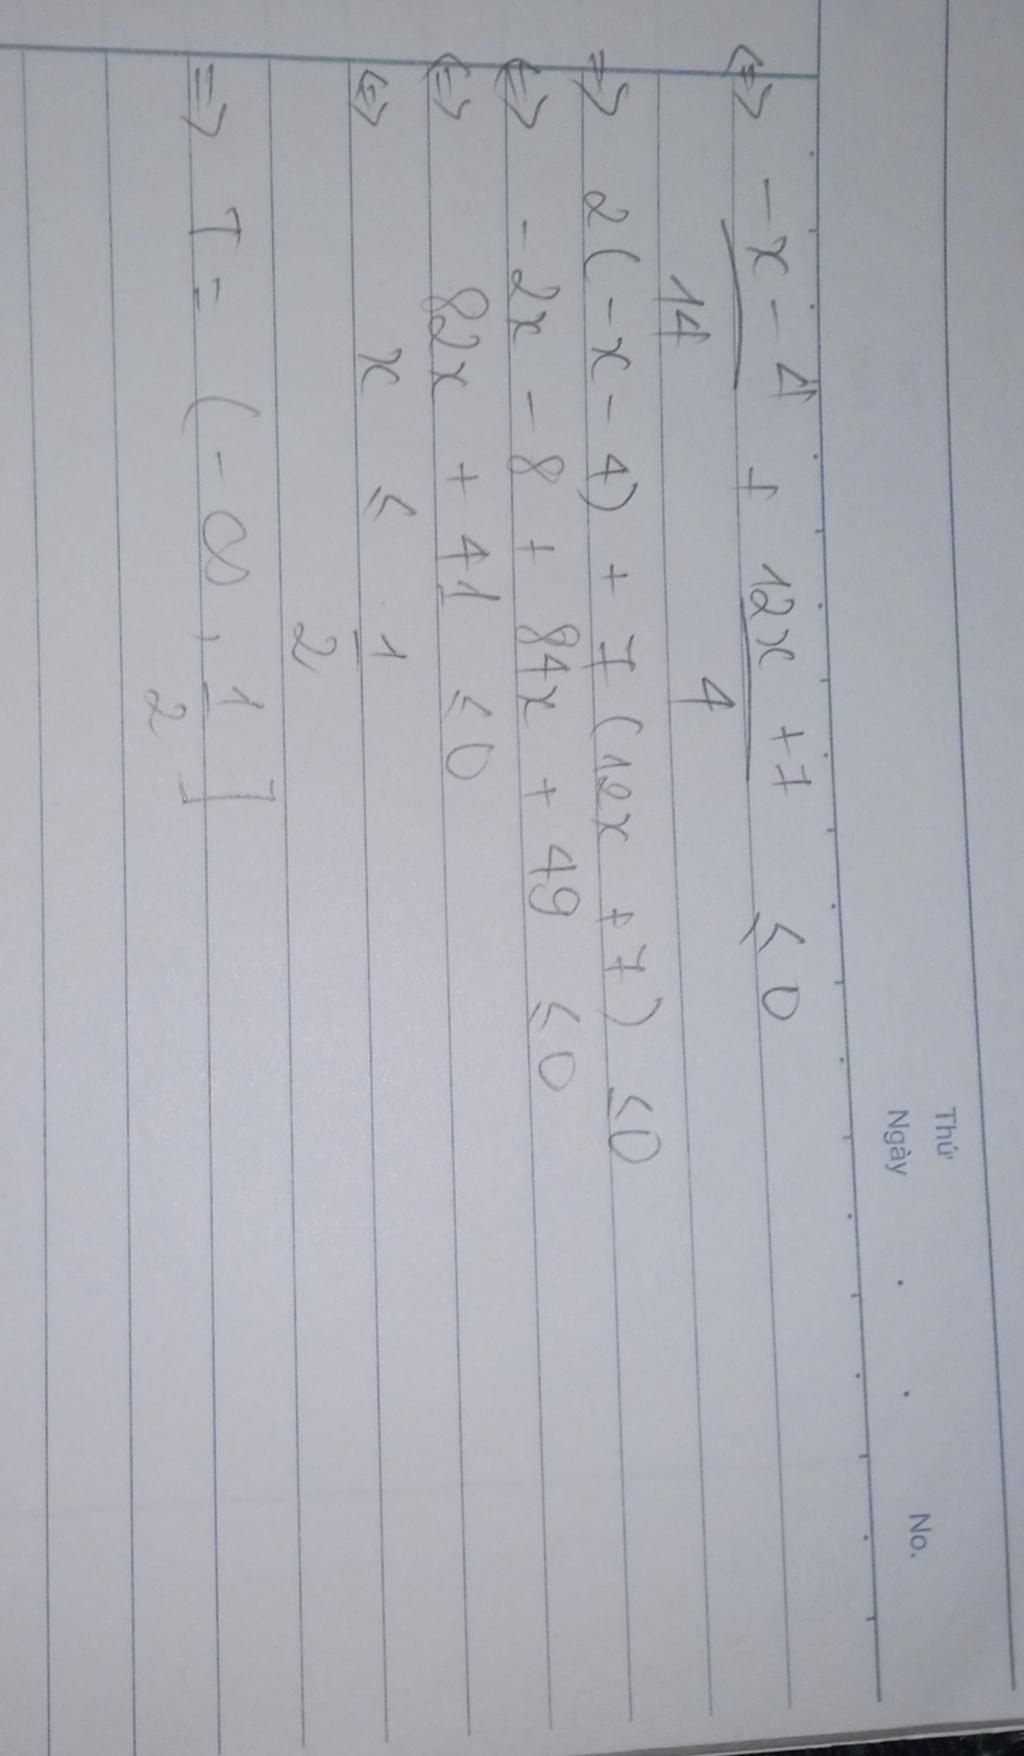 Thứ
Ngày . . No.
<=> -x - 4 / 14 + 12x + 7 / 4 ≤ 0
=> 2(-x - 4) + 7(12x + 7) ≤ 0
<=> -2x - 8 + 84x + 49 ≤ 0
<=> 82x + 41 ≤ 0
<=> x ≤ 1 / 2
=> T = (-∞, 1 / 2]